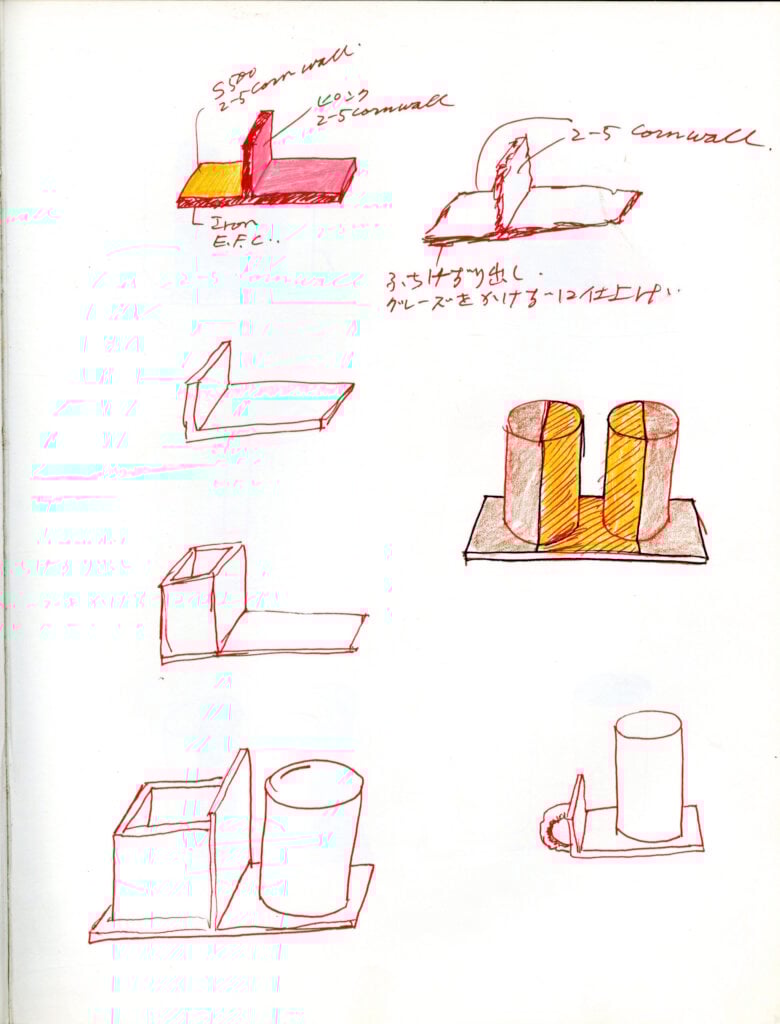 S500
2-5 cornwall.
ピンク
2-5 cornwall
Iron
E.F.C..
2-5 cornwall.
ふちけずり出し.
グレーズをかける 仕上げ.